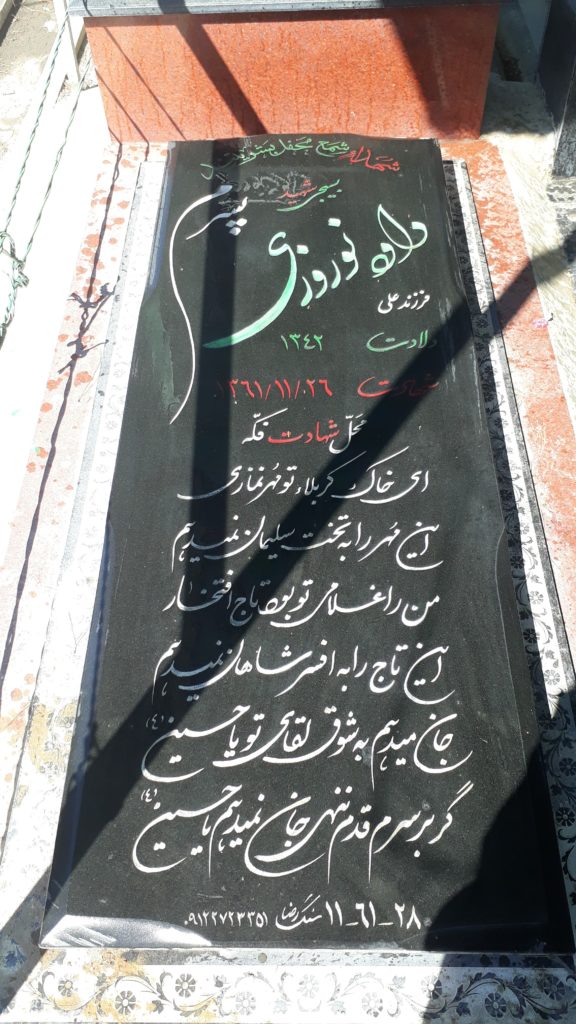 شهدا شمع محفل بشریتند
بسیجی شهید
پسرم
نوروزی
فرزند علی
ولادت ۱۳۴۲
شهادت ۱۳۶۱/۱۱/۰۲۶
محلّ شهادت فکّه
ای خاک کربلاء تو مُهر نمازی
این مُهر را به تخت سلیمان نمیدهم
من را غلامی تو بود تاج افتخار
این تاج را به افسر شاهان نمیدهم
جان میدهم به شوق لقای تو یا حسین (ع)
گر بر سرم قدم ننهی جان نمیدهم یا حسین (ع)
۲۸-۶۱-۱۱ سنگ رضا ۰۹۱۲۲۷۲۳۳۵۱